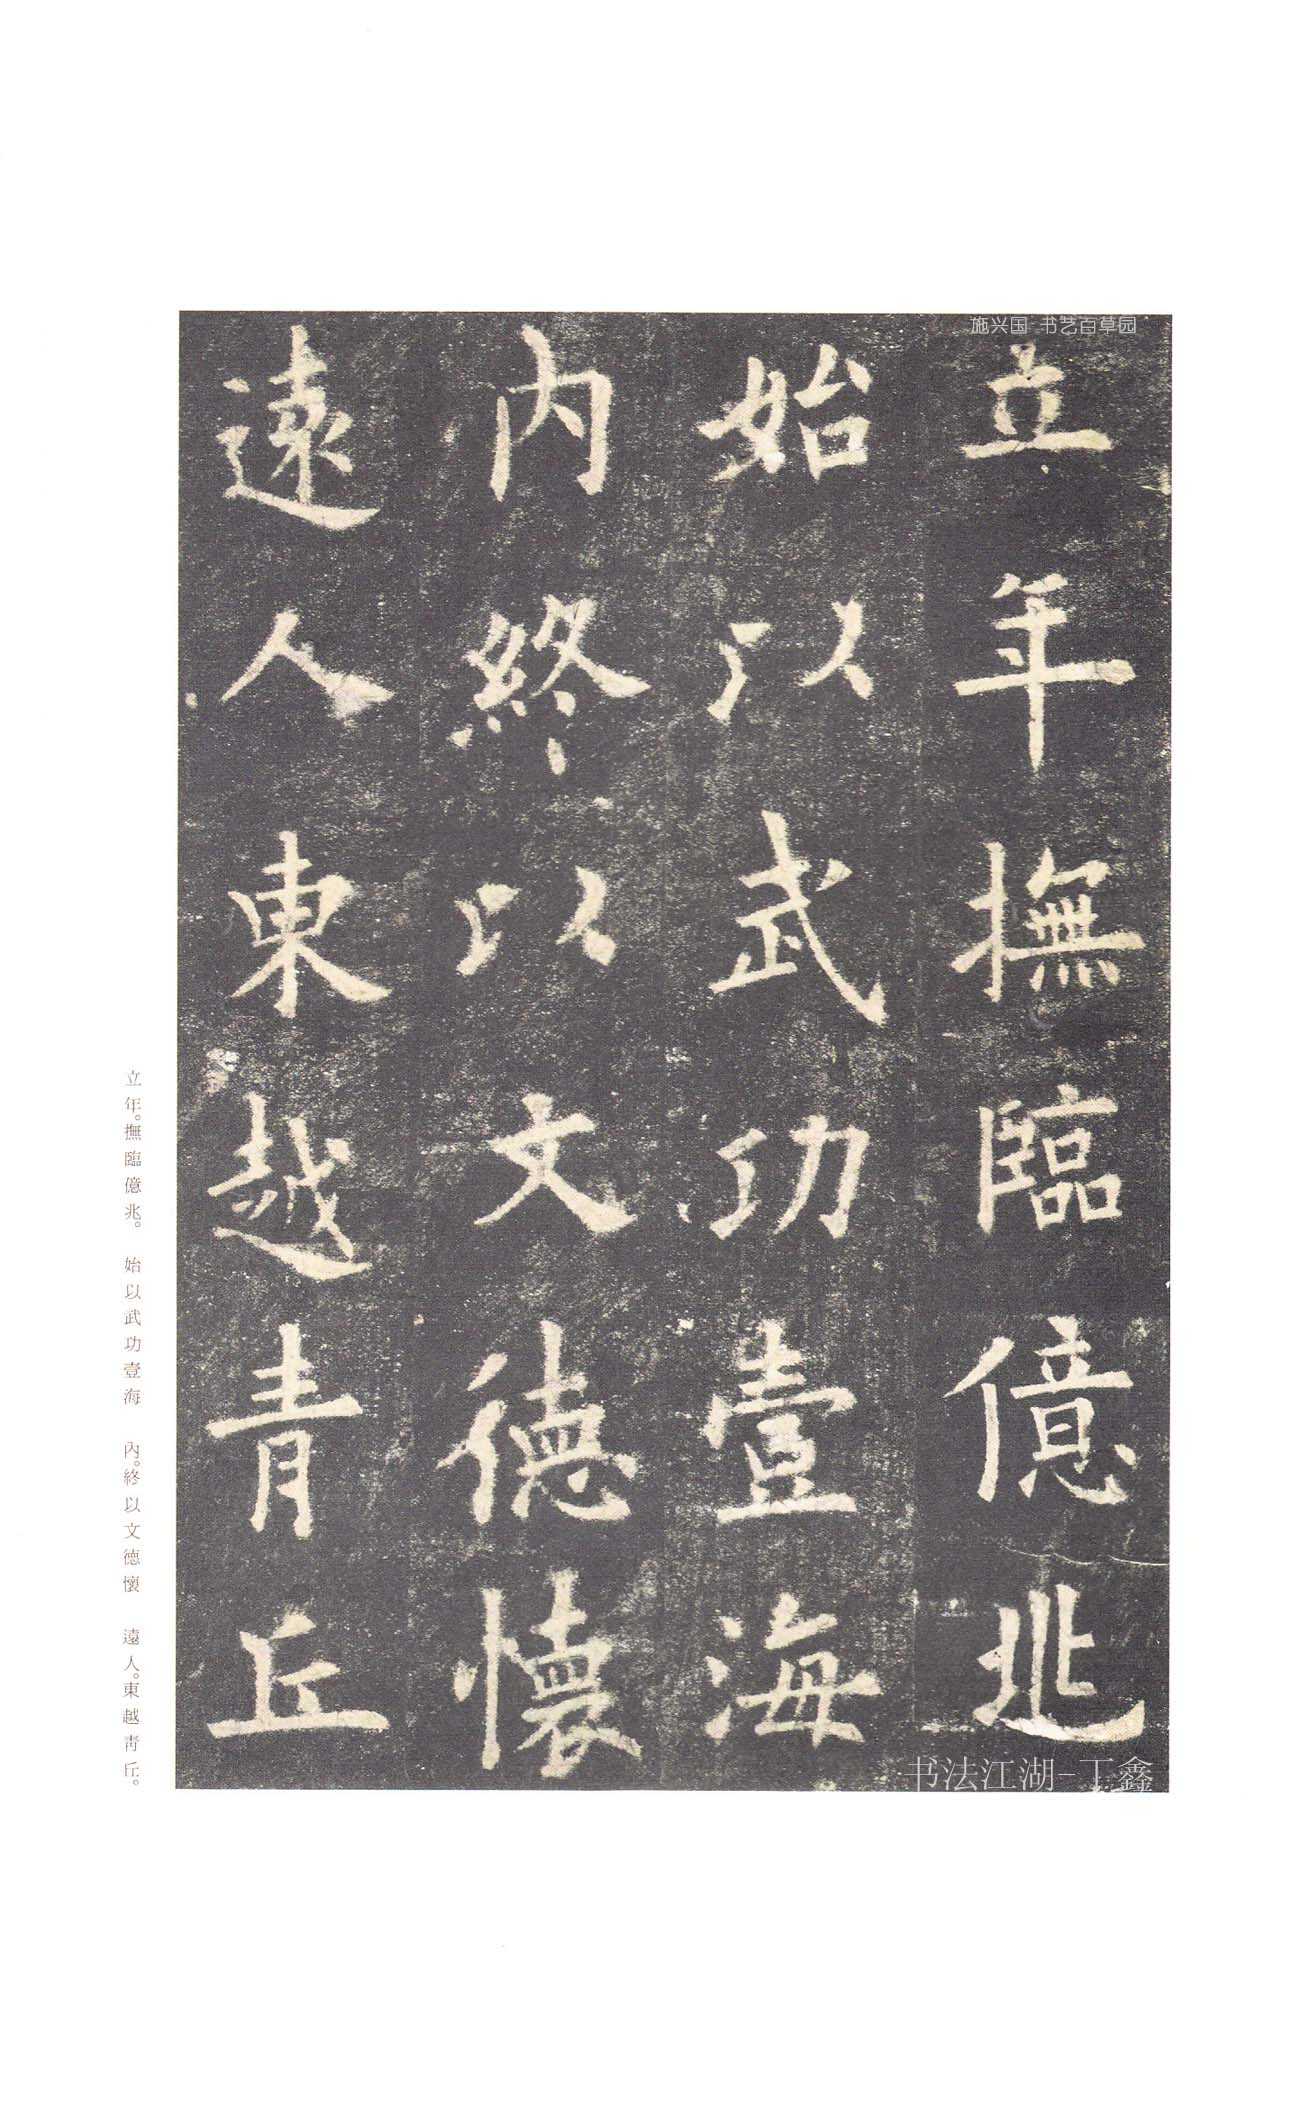 施兴国 书艺百草园
立年撫臨億兆
始以武功壹海
内終以文德懷
遠人東越青丘
书法江湖-丁鑫
立年。撫臨億兆。 始以武功壹海 內。終以文德懷 遠人。東越青丘。